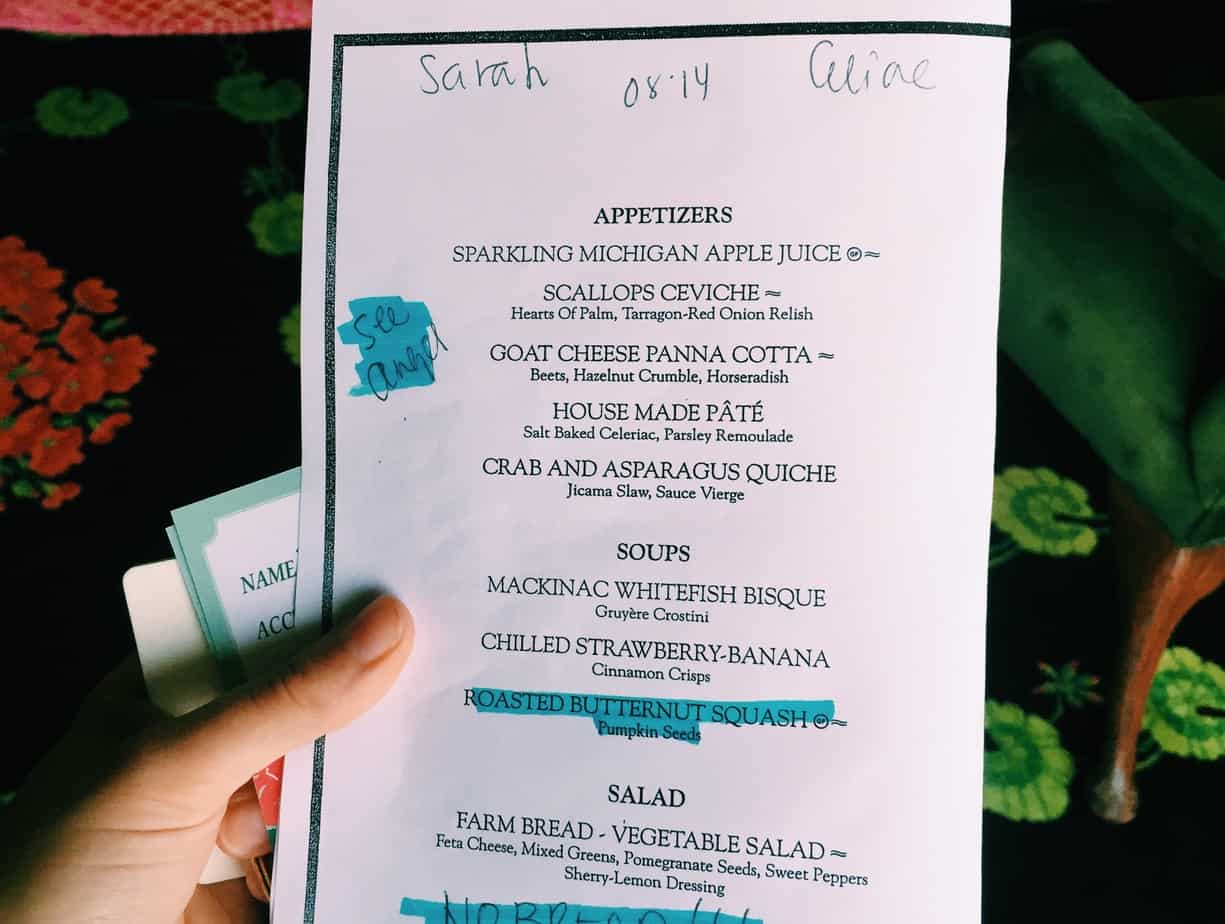 Sarah 08·14
APPETIZERS
SPARKLING MICHIGAN APPLE JUICE GF ≈
SCALLOPS CEVICHE ≈
Hearts Of Palm, Tarragon-Red Onion Relish
see
angel
GOAT CHEESE PANNA COTTA ≈
Beets, Hazelnut Crumble, Horseradish
HOUSE MADE PÂTÉ
Salt Baked Celeriac, Parsley Remoulade
CRAB AND ASPARAGUS QUICHE
Jicama Slaw, Sauce Vierge
SOUPS
MACKINAC WHITEFISH BISQUE
Gruyère Crostini
CHILLED STRAWBERRY-BANANA
Cinnamon Crisps
ROASTED BUTTERNUT SQUASH GF ≈
Pumpkin Seeds
SALAD
FARM BREAD - VEGETABLE SALAD ≈
Feta Cheese, Mixed Greens, Pomegranate Seeds, Sweet Peppers
Sherry-Lemon Dressing
NO BREAD
NAME
ACC